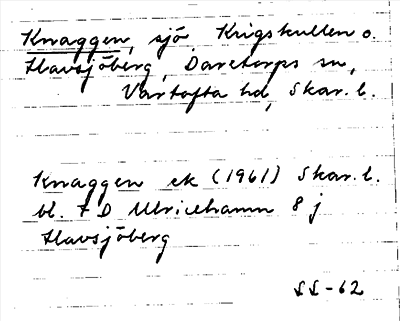 Knaggen, sjö Krigskullen o.
Havsjöberg, Daretorps sn,
Vartofta hd, Skar. l.
Knaggen ek (1961) Skar. l.
bl. 7 D Ulricehamn 8 j
Havsjöberg
SS-62